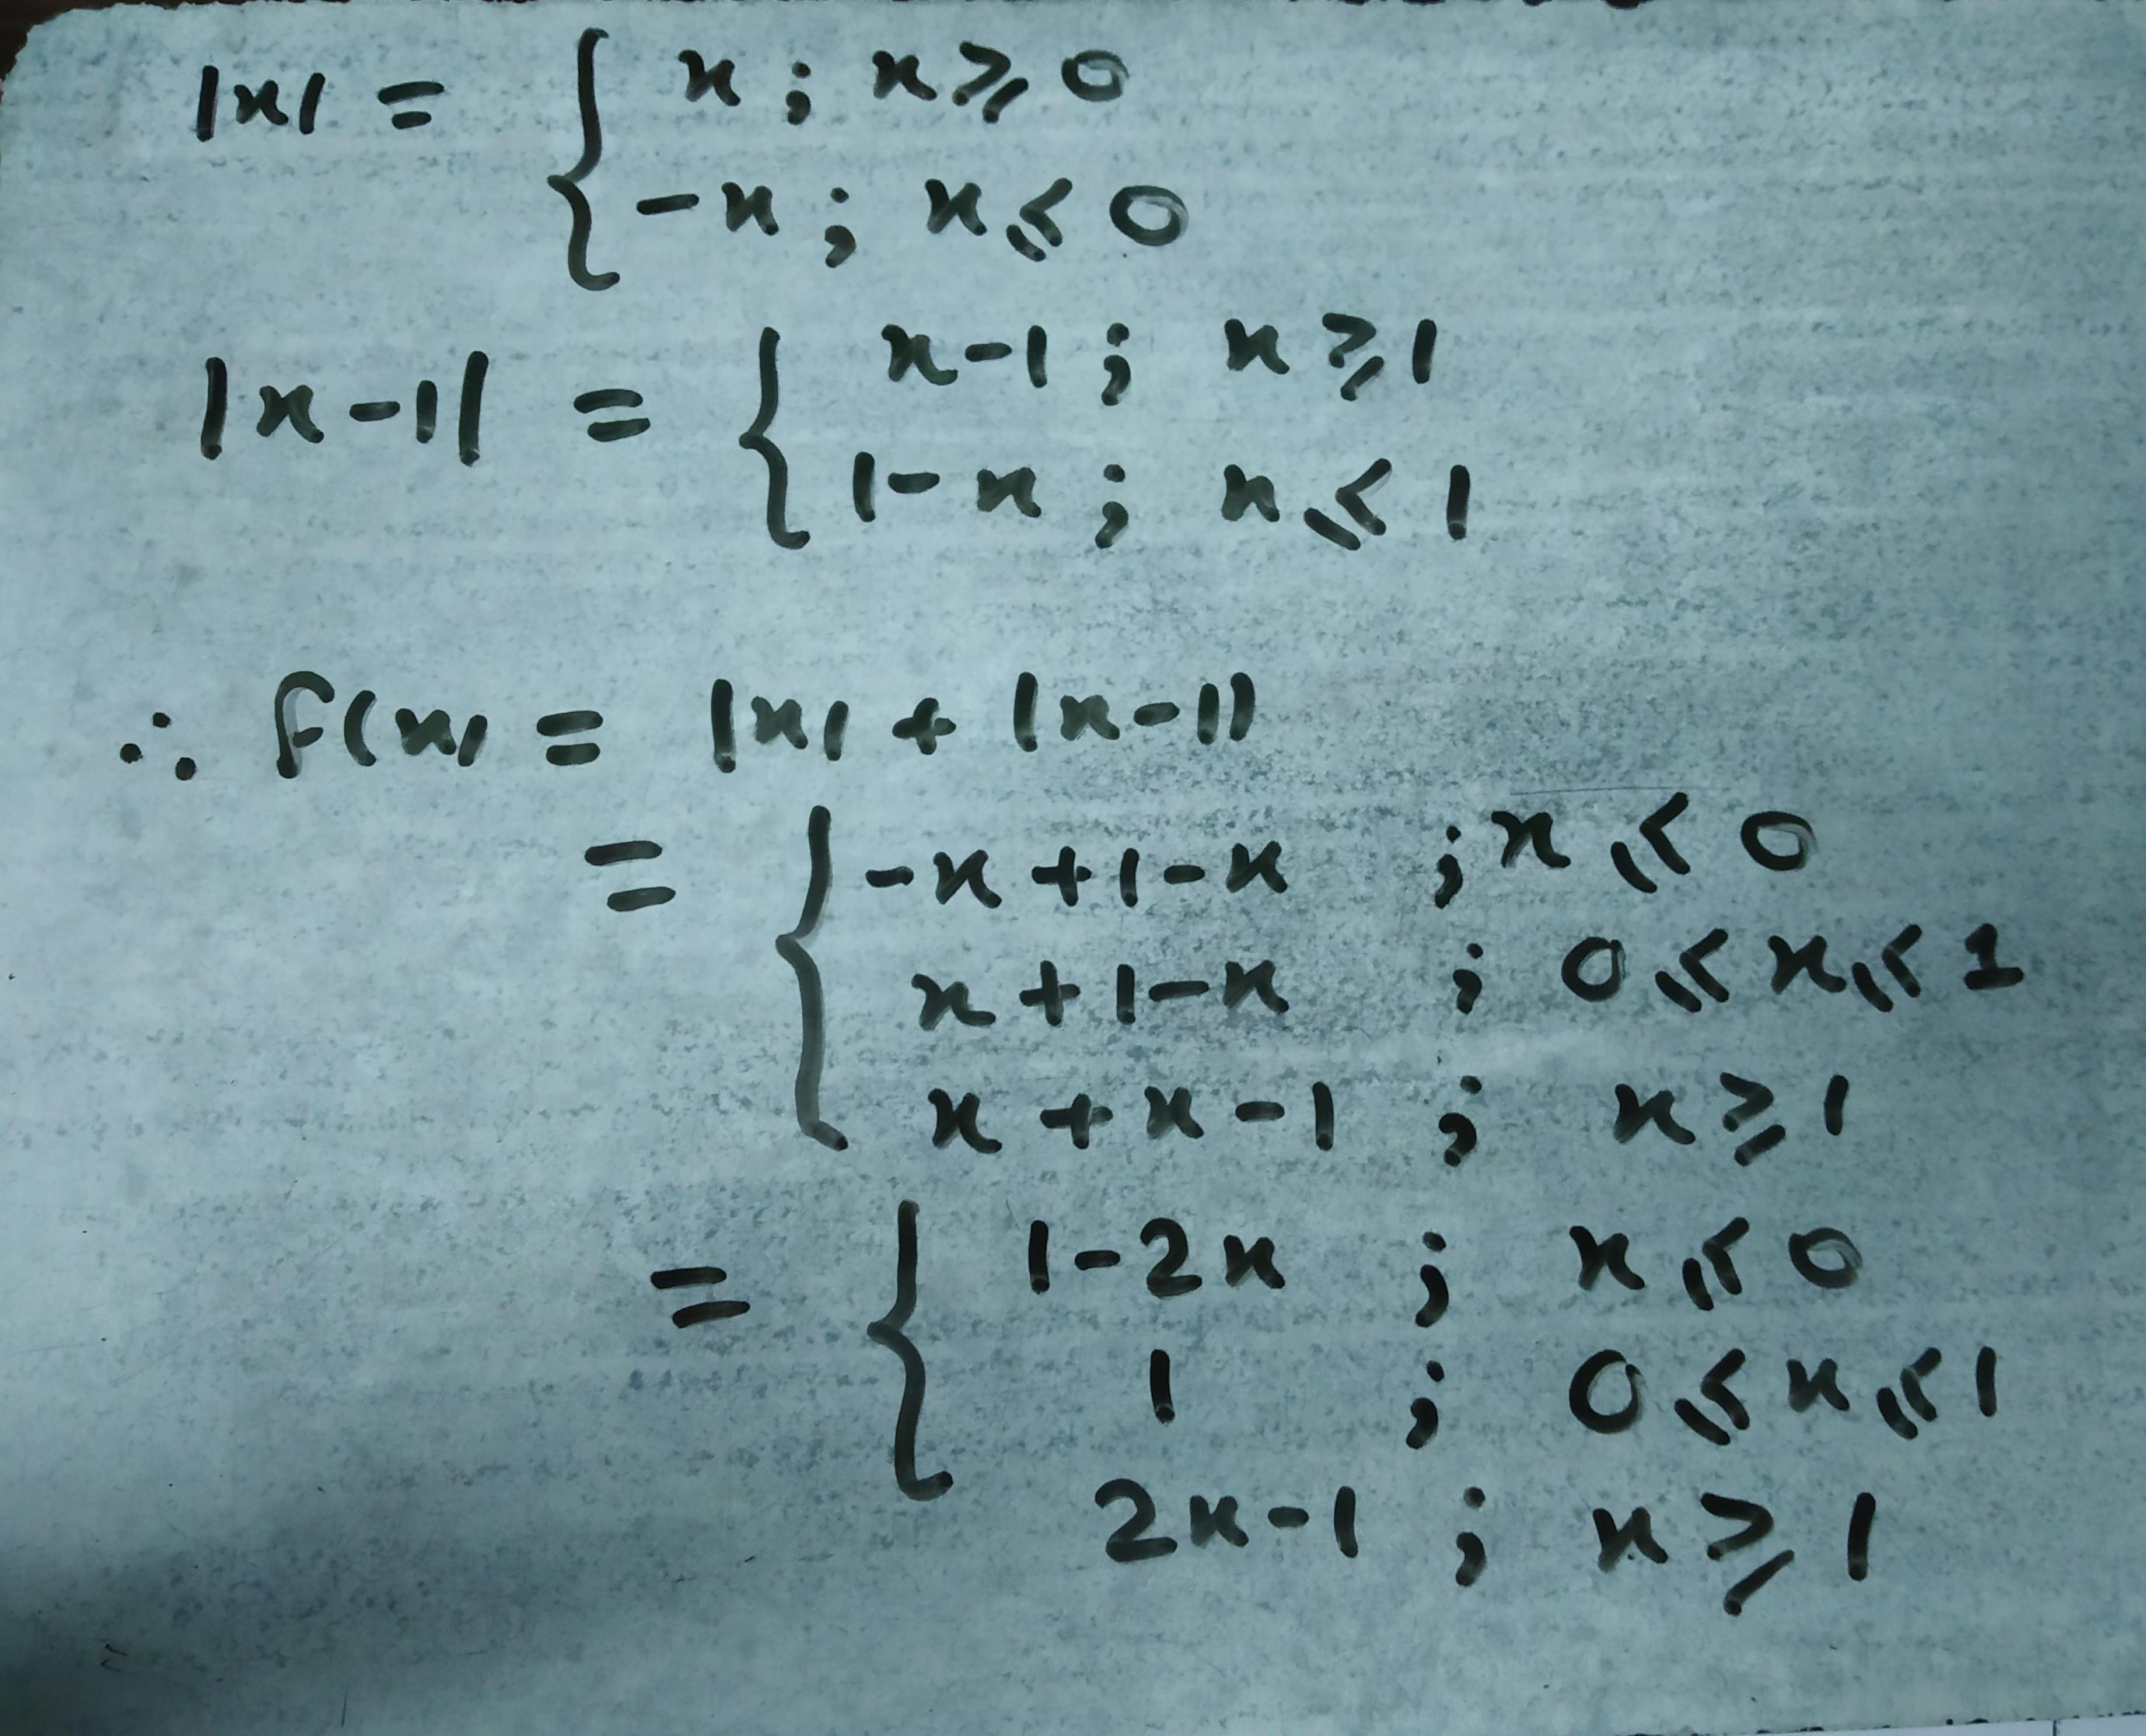 |x| = { x ; x ⩾ 0
-x ; x ⩽ 0
|x-1| = { x-1 ; x ⩾ 1
1-x ; x ⩽ 1
∴ f(x) = |x| + |x-1|
= { -x+1-x ; x ⩽ 0
x+1-x ; 0 ⩽ x ⩽ 1
x+x-1 ; x ⩾ 1
= { 1-2x ; x ⩽ 0
1 ; 0 ⩽ x ⩽ 1
2x-1 ; x ⩾ 1